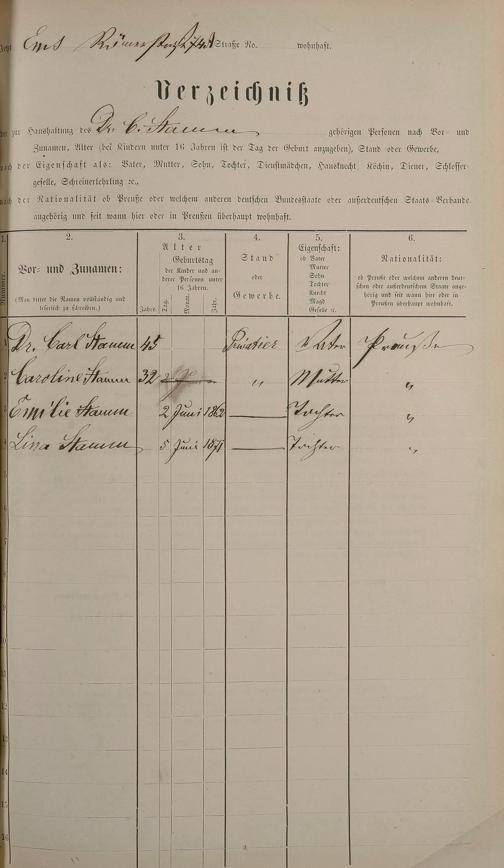 Ems Römerstraße 74 Straße No. wohnhaft.
Verzeichniß
der zur Haushaltung des Dr. C. Stamm gehörigen Personen nach Vor- und
Zunamen, Alter (bei Kindern unter 16 Jahren ist der Tag der Geburt anzugeben), Stand oder Gewerbe,
nach der Eigenschaft als: Vater, Mutter, Sohn, Tochter, Dienstmädchen, Hausknecht, Köchin, Diener, Schlosser-
geselle, Schreinerlehrling ꝛc.,
nach der Nationalität ob Preuße oder welchem anderen deutschen Bundesstaate oder außerdeutschen Staats-Verbande
angehörig und seit wann hier oder in Preußen überhaupt wohnhaft.
1. 2. 3. 4. 5. 6.
Nummer.
Vor- und Zunamen:
(Man bittet die Namen vollständig und
leserlich zu schreiben.)
Alter
Geburtstag
der Kinder und an-
derer Personen unter
16 Jahren.
Jahre. Tag. Monat. Jahr.
Stand
oder
Gewerbe.
Eigenschaft:
ob Vater
Mutter
Sohn
Tochter
Knecht
Magd
Geselle ꝛc.
Nationalität:
ob Preuße oder welchen anderen deut-
schen oder außerdeutschen Staate ange-
hörig und seit wann hier oder in
Preußen überhaupt wohnhaft.
1 Dr. Carl Stamm 45 Privatier Vater Preuße
2 Caroline Stamm 32 " Mutter "
3 Emilie Stamm 2 Juni 1862 Tochter "
4 Lina Stamm 5 Juni 1871 Tochter "
5
6
7
8
9
10
11
12
13
14
15
16